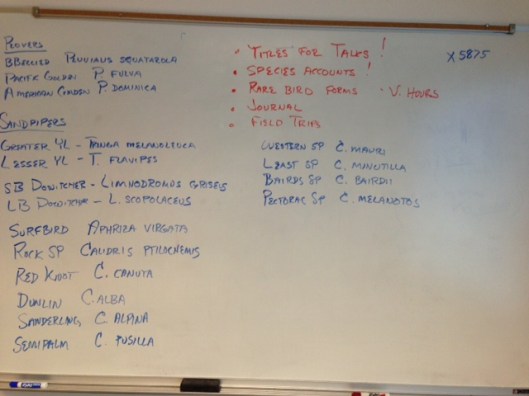 PLOVERS
BBELLIED PLUVIALIS SQUATAROLA
PACIFIC GOLDEN P. FULVA
AMERICAN GOLDEN P. DOMINICA
SANDPIPERS
GREATER YL - TRINGA MELANOLEUCA
LESSER YL - T. FLAVIPES
SB DOWITCHER - LIMNODROMUS GRISEUS
LB DOWITCHER - L. SCOLOPACEUS
SURFBIRD APHRIZA VIRGATA
ROCK SP CALIDRIS PTILOCNEMIS
RED KNOT C. CANUTA
DUNLIN C. ALBA
SANDERLING C. ALPINA
SEMIPALM C. PUSILLA
• TITLES FOR TALKS!
• SPECIES ACCOUNTS!
• RARE BIRD FORMS • V. HOURS
• JOURNAL
• FIELD TRIPS
WESTERN SP C. MAURI
LEAST SP C. MINUTILLA
BAIRDS SP C. BAIRDII
PECTORAL SP C. MELANOTOS
X5875